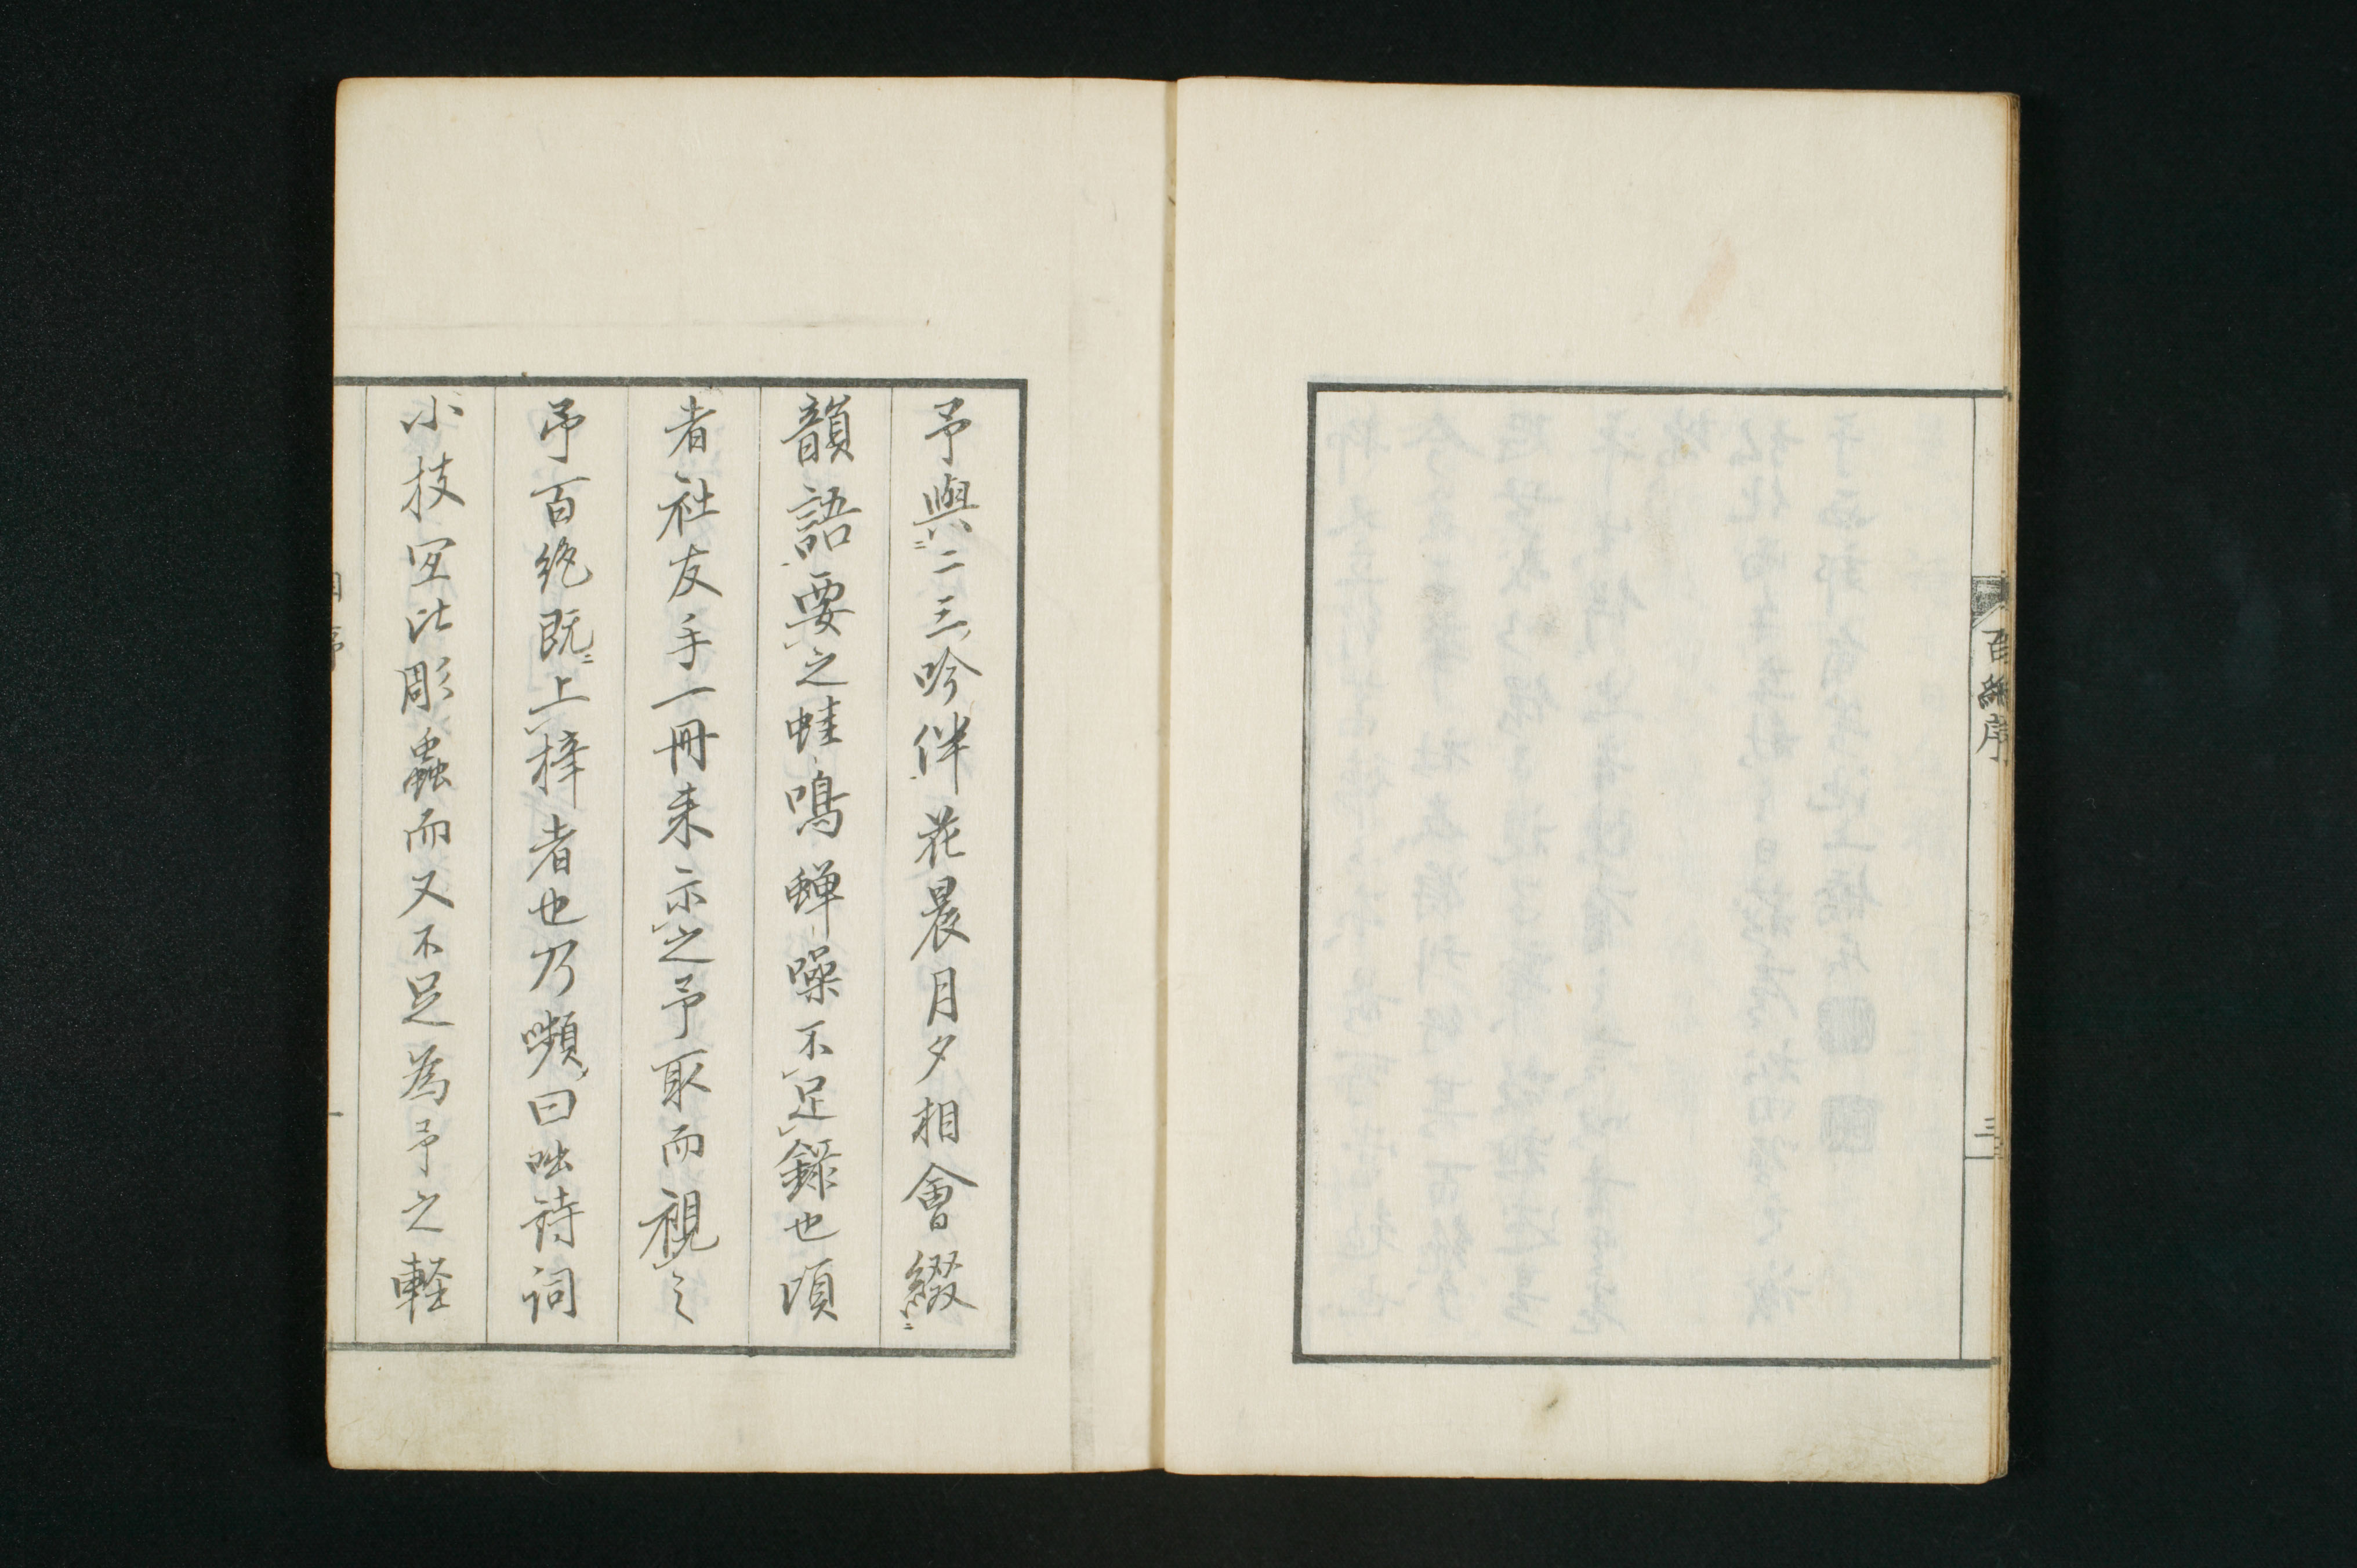 百絶序
三
予與二三吟伴花晨月夕相會綴
韻語要之蛙鳴蝉噪不足録也頃
者社友手一冊来示之予取而視之
予百絶既上梓者也乃嚬曰咄詩詞
小技宜比彫蟲而又不足為予之軽
序
一